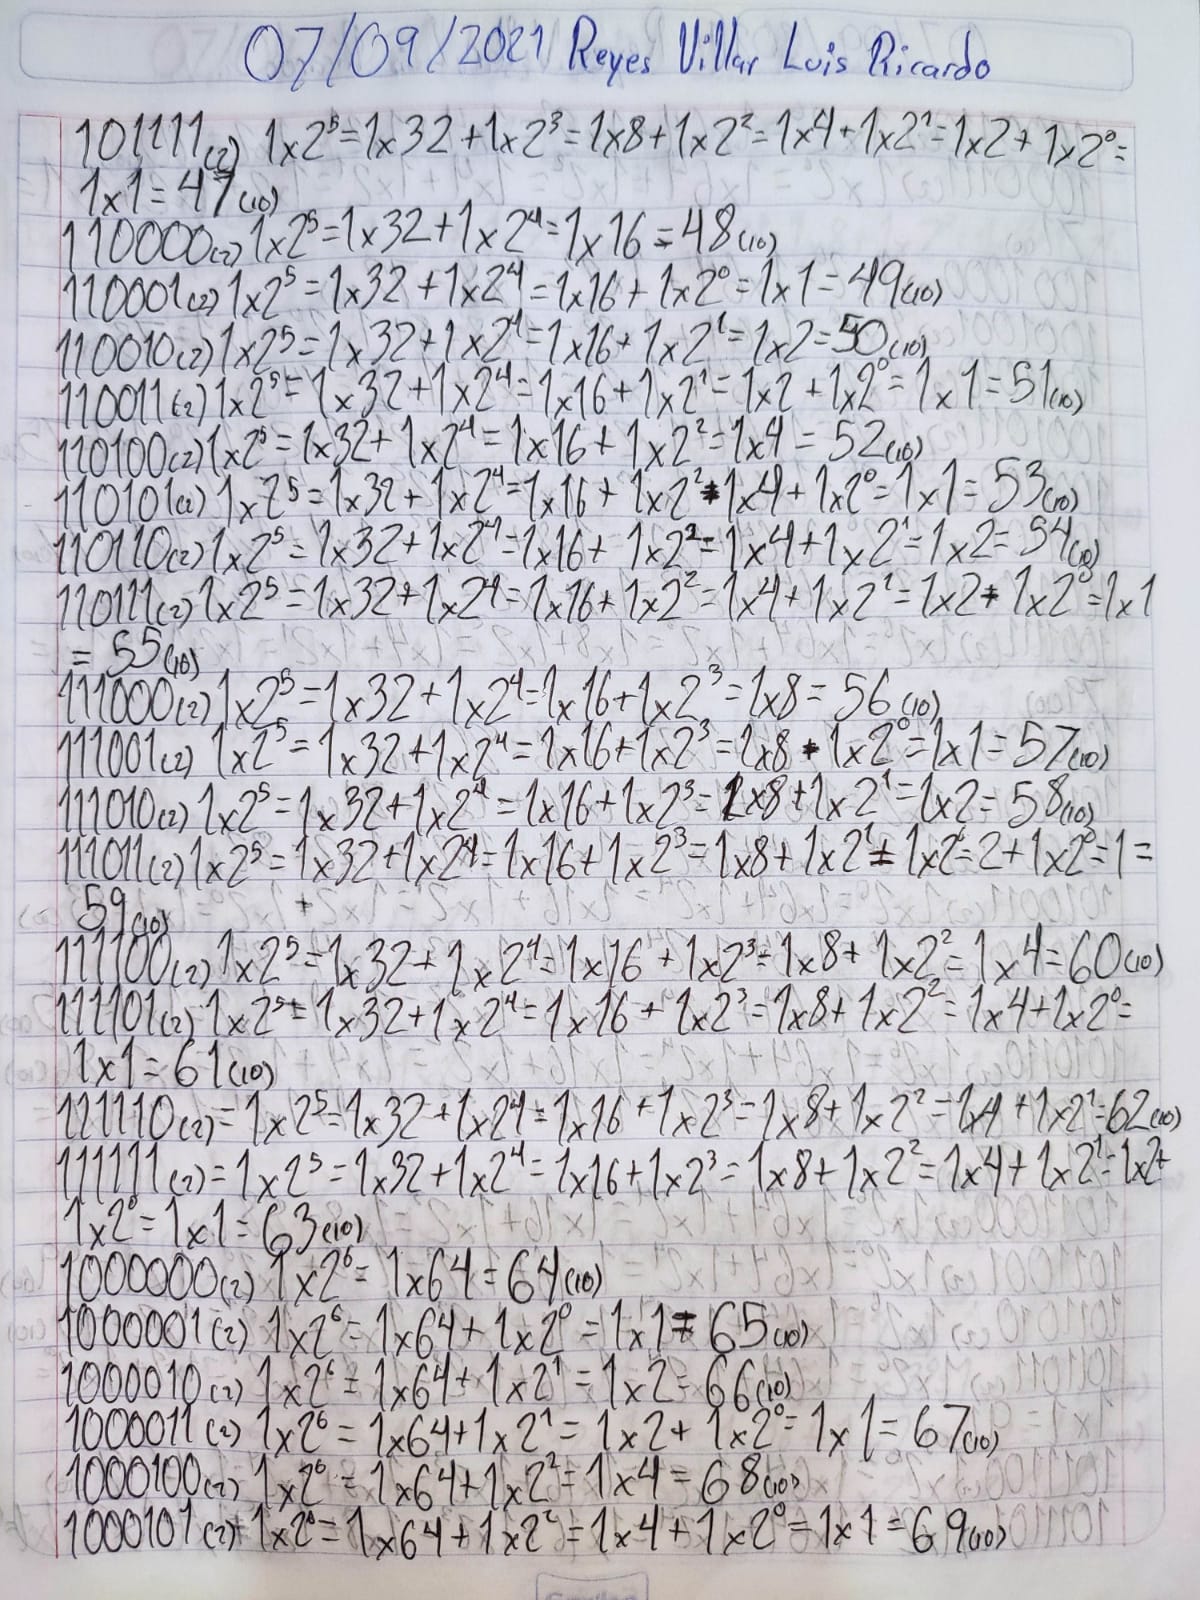 07/09/2021 Reyes Villar Luis Ricardo
101111(2) 1x2⁵=1x32+1x2³=1x8+1x2²=1x4+1x2¹=1x2+1x2⁰=
1x1=47(10)
110000(2) 1x2⁵=1x32+1x2⁴=1x16=48(10)
110001(2) 1x2⁵=1x32+1x2⁴=1x16+1x2⁰=1x1=49(10)
110010(2) 1x2⁵=1x32+1x2⁴=1x16+1x2¹=1x2=50(10)
110011(2) 1x2⁵=1x32+1x2⁴=1x16+1x2¹=1x2+1x2⁰=1x1=51(10)
110100(2) 1x2⁵=1x32+1x2⁴=1x16+1x2²=1x4=52(10)
110101(2) 1x2⁵=1x32+1x2⁴=1x16+1x2²=1x4+1x2⁰=1x1=53(10)
110110(2) 1x2⁵=1x32+1x2⁴=1x16+1x2²=1x4+1x2¹=1x2=54(10)
110111(2) 1x2⁵=1x32+1x2⁴=1x16+1x2²=1x4+1x2¹=1x2+1x2⁰=1x1
=55(10)
111000(2) 1x2⁵=1x32+1x2⁴=1x16+1x2³=1x8=56(10)
111001(2) 1x2⁵=1x32+1x2⁴=1x16+1x2³=1x8+1x2⁰=1x1=57(10)
111010(2) 1x2⁵=1x32+1x2⁴=1x16+1x2³=1x8+1x2¹=1x2=58(10)
111011(2) 1x2⁵=1x32+1x2⁴=1x16+1x2³=1x8+1x2¹=1x2=2+1x2⁰=1=
59(10)
111100(2) 1x2⁵=1x32+1x2⁴=1x16+1x2³=1x8+1x2²=1x4=60(10)
111101(2) 1x2⁵=1x32+1x2⁴=1x16+1x2³=1x8+1x2²=1x4+1x2⁰=
1x1=61(10)
111110(2)=1x2⁵=1x32+1x2⁴=1x16+1x2³=1x8+1x2²=1x4+1x2¹=62(10)
111111(2)=1x2⁵=1x32+1x2⁴=1x16+1x2³=1x8+1x2²=1x4+1x2¹=1x2+
1x2⁰=1x1=63(10)
1000000(2) 1x2⁶=1x64=64(10)
1000001(2) 1x2⁶=1x64+1x2⁰=1x1=65(10)
1000010(2) 1x2⁶=1x64+1x2¹=1x2=66(10)
1000011(2) 1x2⁶=1x64+1x2¹=1x2+1x2⁰=1x1=67(10)
1000100(2) 1x2⁶=1x64+1x2²=1x4=68(10)
1000101(2) 1x2⁶=1x64+1x2²=1x4+1x2⁰=1x1=69(10)